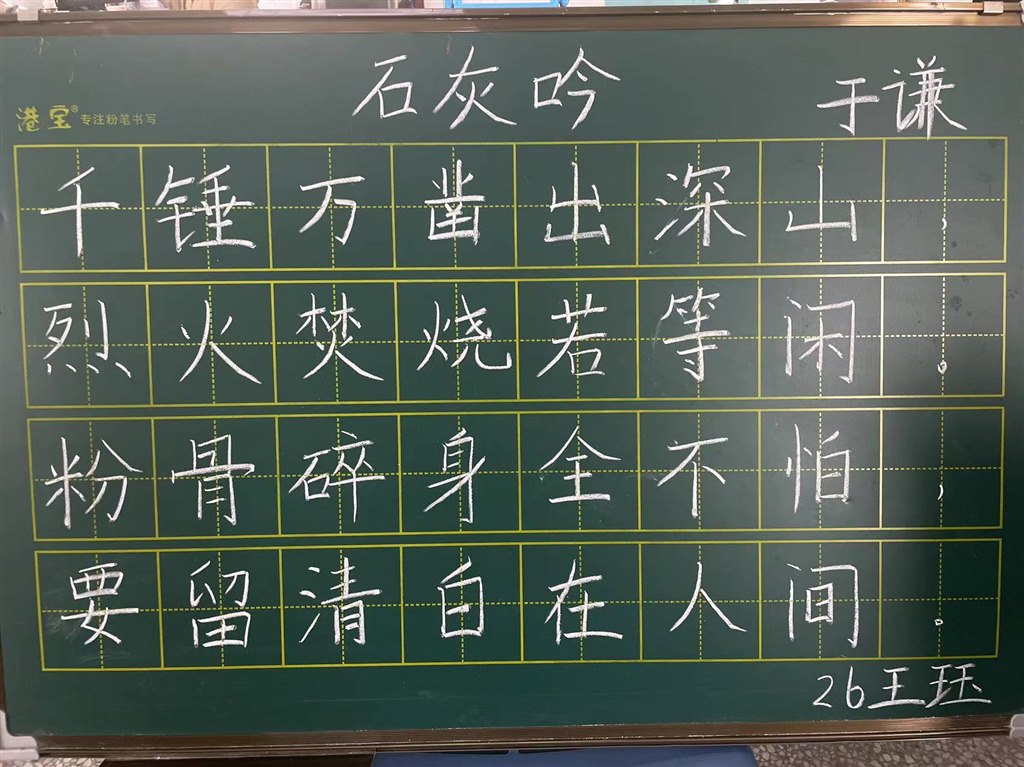 石灰吟 于谦
港宝® 专注粉笔书写
千锤万凿出深山,
烈火焚烧若等闲。
粉骨碎身全不怕,
要留清白在人间。
26王珏